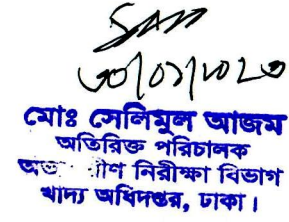 ৩০/০১/২০২৩
মোঃ সেলিমুল আজম
অতিরিক্ত পরিচালক
নিরীক্ষা বিভাগ
খাদ্য অধিদপ্তর, ঢাকা।